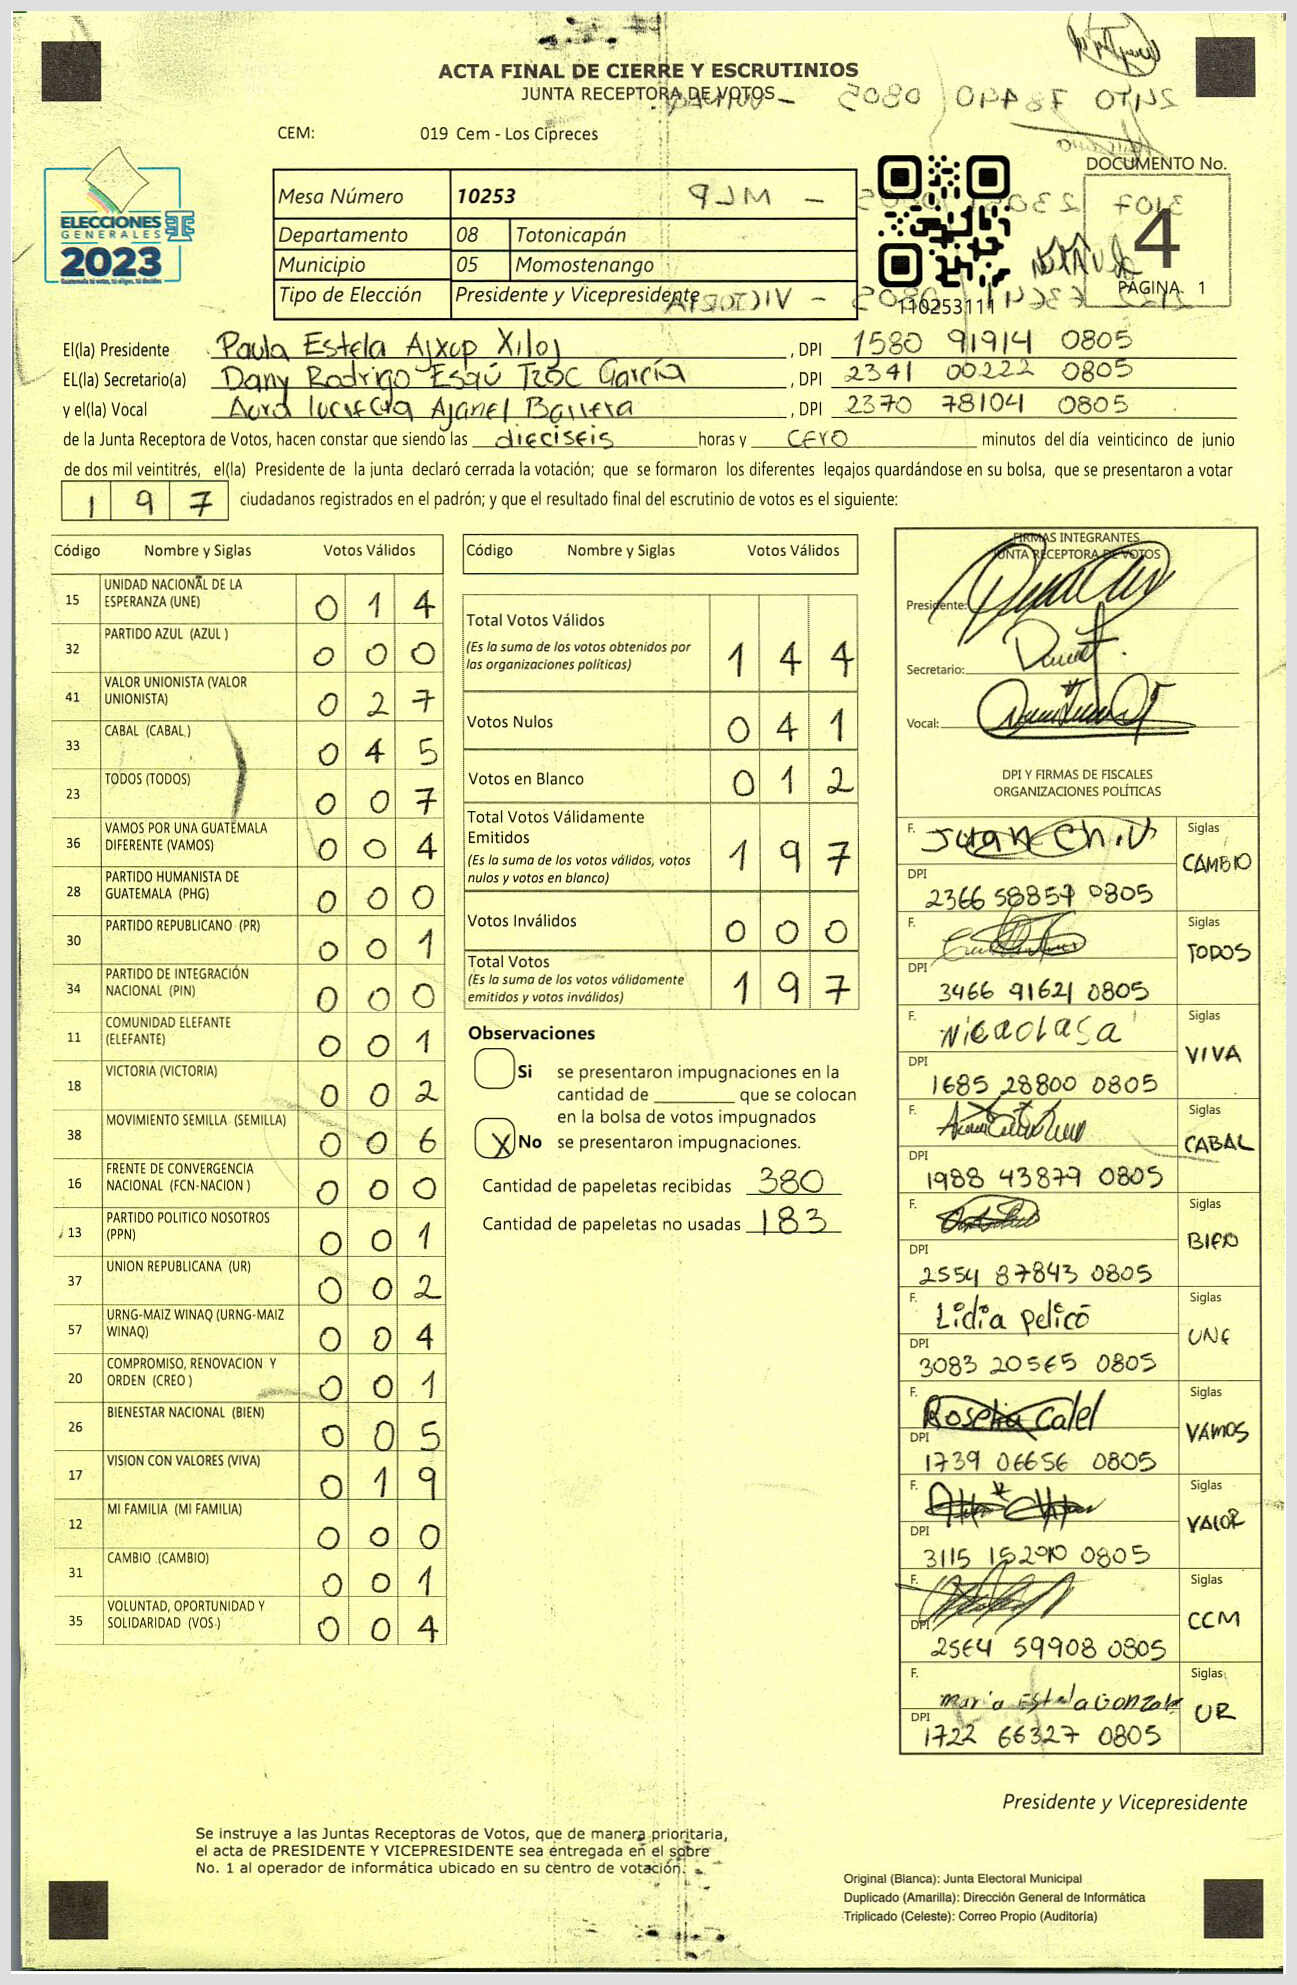 ACTA FINAL DE CIERRE Y ESCRUTINIOS
JUNTA RECEPTORA DE VOTOS
CEM: 019 Cem - Los Cipreces
DOCUMENTO No.
4
PÁGINA 1
ELECCIONES
GENERALES
2023
Guatemala tú votas, tú eliges, tú decides
Mesa Número 10253
Departamento 08 Totonicapán
Municipio 05 Momostenango
Tipo de Elección Presidente y Vicepresidente
110253111
El(la) Presidente Paula Estela Ajxup Xiloj , DPI 1580 91914 0805
EL(la) Secretario(a) Dany Rodrigo Esqú Tzoc García , DPI 2341 00222 0805
y el(la) Vocal Aura lucrecia Ajanel Barrera , DPI 2370 78104 0805
de la Junta Receptora de Votos, hacen constar que siendo las dieciseis horas y cero minutos del día veinticinco de junio
de dos mil veintitrés, el(la) Presidente de la junta declaró cerrada la votación; que se formaron los diferentes legajos guardándose en su bolsa, que se presentaron a votar
1 9 7 ciudadanos registrados en el padrón; y que el resultado final del escrutinio de votos es el siguiente:
Código Nombre y Siglas Votos Válidos
15 UNIDAD NACIONAL DE LA ESPERANZA (UNE) 0 1 4
32 PARTIDO AZUL (AZUL ) 0 0 0
41 VALOR UNIONISTA (VALOR UNIONISTA) 0 2 7
33 CABAL (CABAL ) 0 4 5
23 TODOS (TODOS) 0 0 7
36 VAMOS POR UNA GUATEMALA DIFERENTE (VAMOS) 0 0 4
28 PARTIDO HUMANISTA DE GUATEMALA (PHG) 0 0 0
30 PARTIDO REPUBLICANO (PR) 0 0 1
34 PARTIDO DE INTEGRACIÓN NACIONAL (PIN) 0 0 0
11 COMUNIDAD ELEFANTE (ELEFANTE) 0 0 1
18 VICTORIA (VICTORIA) 0 0 2
38 MOVIMIENTO SEMILLA (SEMILLA) 0 0 6
16 FRENTE DE CONVERGENCIA NACIONAL (FCN-NACION ) 0 0 0
13 PARTIDO POLITICO NOSOTROS (PPN) 0 0 1
37 UNION REPUBLICANA (UR) 0 0 2
57 URNG-MAIZ WINAQ (URNG-MAIZ WINAQ) 0 0 4
20 COMPROMISO, RENOVACION Y ORDEN (CREO ) 0 0 1
26 BIENESTAR NACIONAL (BIEN) 0 0 5
17 VISION CON VALORES (VIVA) 0 1 9
12 MI FAMILIA (MI FAMILIA) 0 0 0
31 CAMBIO (CAMBIO) 0 0 1
35 VOLUNTAD, OPORTUNIDAD Y SOLIDARIDAD (VOS ) 0 0 4
Código Nombre y Siglas Votos Válidos
Total Votos Válidos
(Es la suma de los votos obtenidos por las organizaciones políticas) 1 4 4
Votos Nulos 0 4 1
Votos en Blanco 0 1 2
Total Votos Válidamente Emitidos
(Es la suma de los votos válidos, votos nulos y votos en blanco) 1 9 7
Votos Inválidos 0 0 0
Total Votos
(Es la suma de los votos válidamente emitidos y votos inválidos) 1 9 7
Observaciones
Si se presentaron impugnaciones en la
cantidad de que se colocan
en la bolsa de votos impugnados
X No se presentaron impugnaciones.
Cantidad de papeletas recibidas 380
Cantidad de papeletas no usadas 183
FIRMAS INTEGRANTES
JUNTA RECEPTORA DE VOTOS
Presidente:
Secretario:
Vocal:
DPI Y FIRMAS DE FISCALES
ORGANIZACIONES POLÍTICAS
F. Juan Siglas CAMBIO
DPI 2366 58857 0805
F. Siglas TODOS
DPI 3466 91621 0805
F. Nicaolasa Siglas VIVA
DPI 1685 28800 0805
F. Siglas CABAL
DPI 1988 43879 0805
F. Siglas
DPI 2554 87843 0805
F. Lidia pelicó Siglas UNE
DPI 3083 20565 0805
F. Roselia Calel Siglas VAMOS
DPI 1739 06656 0805
F. Siglas VALOR
DPI 3115 0805
F. Siglas CCM
DPI 2564 59908 0805
F. Maria Estela Gonzale Siglas UR
DPI 1722 66327 0805
Presidente y Vicepresidente
Se instruye a las Juntas Receptoras de Votos, que de manera prioritaria,
el acta de PRESIDENTE Y VICEPRESIDENTE sea entregada en el sobre
No. 1 al operador de informática ubicado en su centro de votación.
Original (Blanca): Junta Electoral Municipal
Duplicado (Amarilla): Dirección General de Informática
Triplicado (Celeste): Correo Propio (Auditoría)